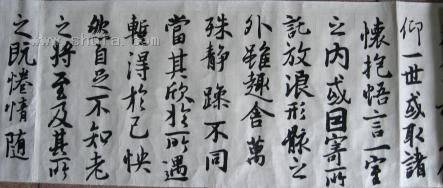 仰一世或取諸
懷抱悟言一室
之内或因寄所
託放浪形骸之
外雖趣舍萬
殊静躁不同
當其欣於所遇
暫得於己怏
然自足不知老
之将至及其所
之既惓情随